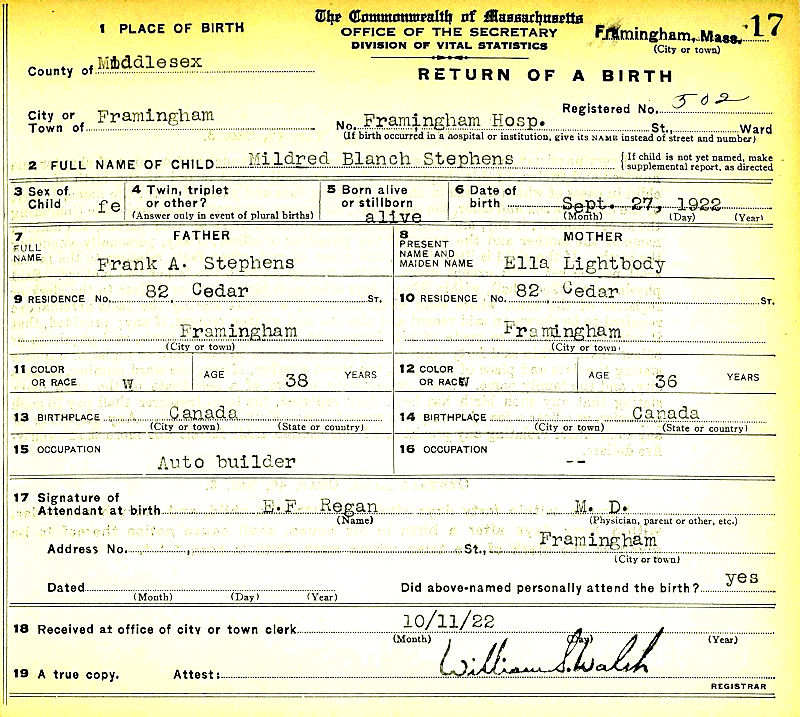 The Commonwealth of Massachusetts
OFFICE OF THE SECRETARY
DIVISION OF VITAL STATISTICS
Framingham, Mass. 17
(City or town)
1 PLACE OF BIRTH
County of Middlesex
RETURN OF A BIRTH
Registered No. 502
City or Town of Framingham
No. Framingham Hosp. St., Ward
(If birth occurred in a hospital or institution, give its NAME instead of street and number)
2 FULL NAME OF CHILD Mildred Blanch Stephens
{ If child is not yet named, make supplemental report, as directed
3 Sex of Child fe
4 Twin, triplet or other?
(Answer only in event of plural births)
5 Born alive or stillborn alive
6 Date of birth Sept. 27, 1922
(Month) (Day) (Year)
7 FATHER
FULL NAME Frank A. Stephens
8 MOTHER
PRESENT NAME AND MAIDEN NAME Ella Lightbody
9 RESIDENCE No. 82 Cedar ST.
Framingham
(City or town)
10 RESIDENCE No. 82 Cedar ST.
Framingham
(City or town)
11 COLOR OR RACE W AGE 38 YEARS
12 COLOR OR RACE W AGE 36 YEARS
13 BIRTHPLACE Canada
(City or town) (State or country)
14 BIRTHPLACE Canada
(City or town) (State or country)
15 OCCUPATION
Auto builder
16 OCCUPATION
--
17 Signature of Attendant at birth E.F Regan M. D.
(Name) (Physician, parent or other, etc.)
Address No. St., Framingham
(City or town)
Dated
(Month) (Day) (Year)
Did above-named personally attend the birth? yes
18 Received at office of city or town clerk 10/11/22
(Month) (Day) (Year)
19 A true copy. Attest: William S. Walsh
REGISTRAR